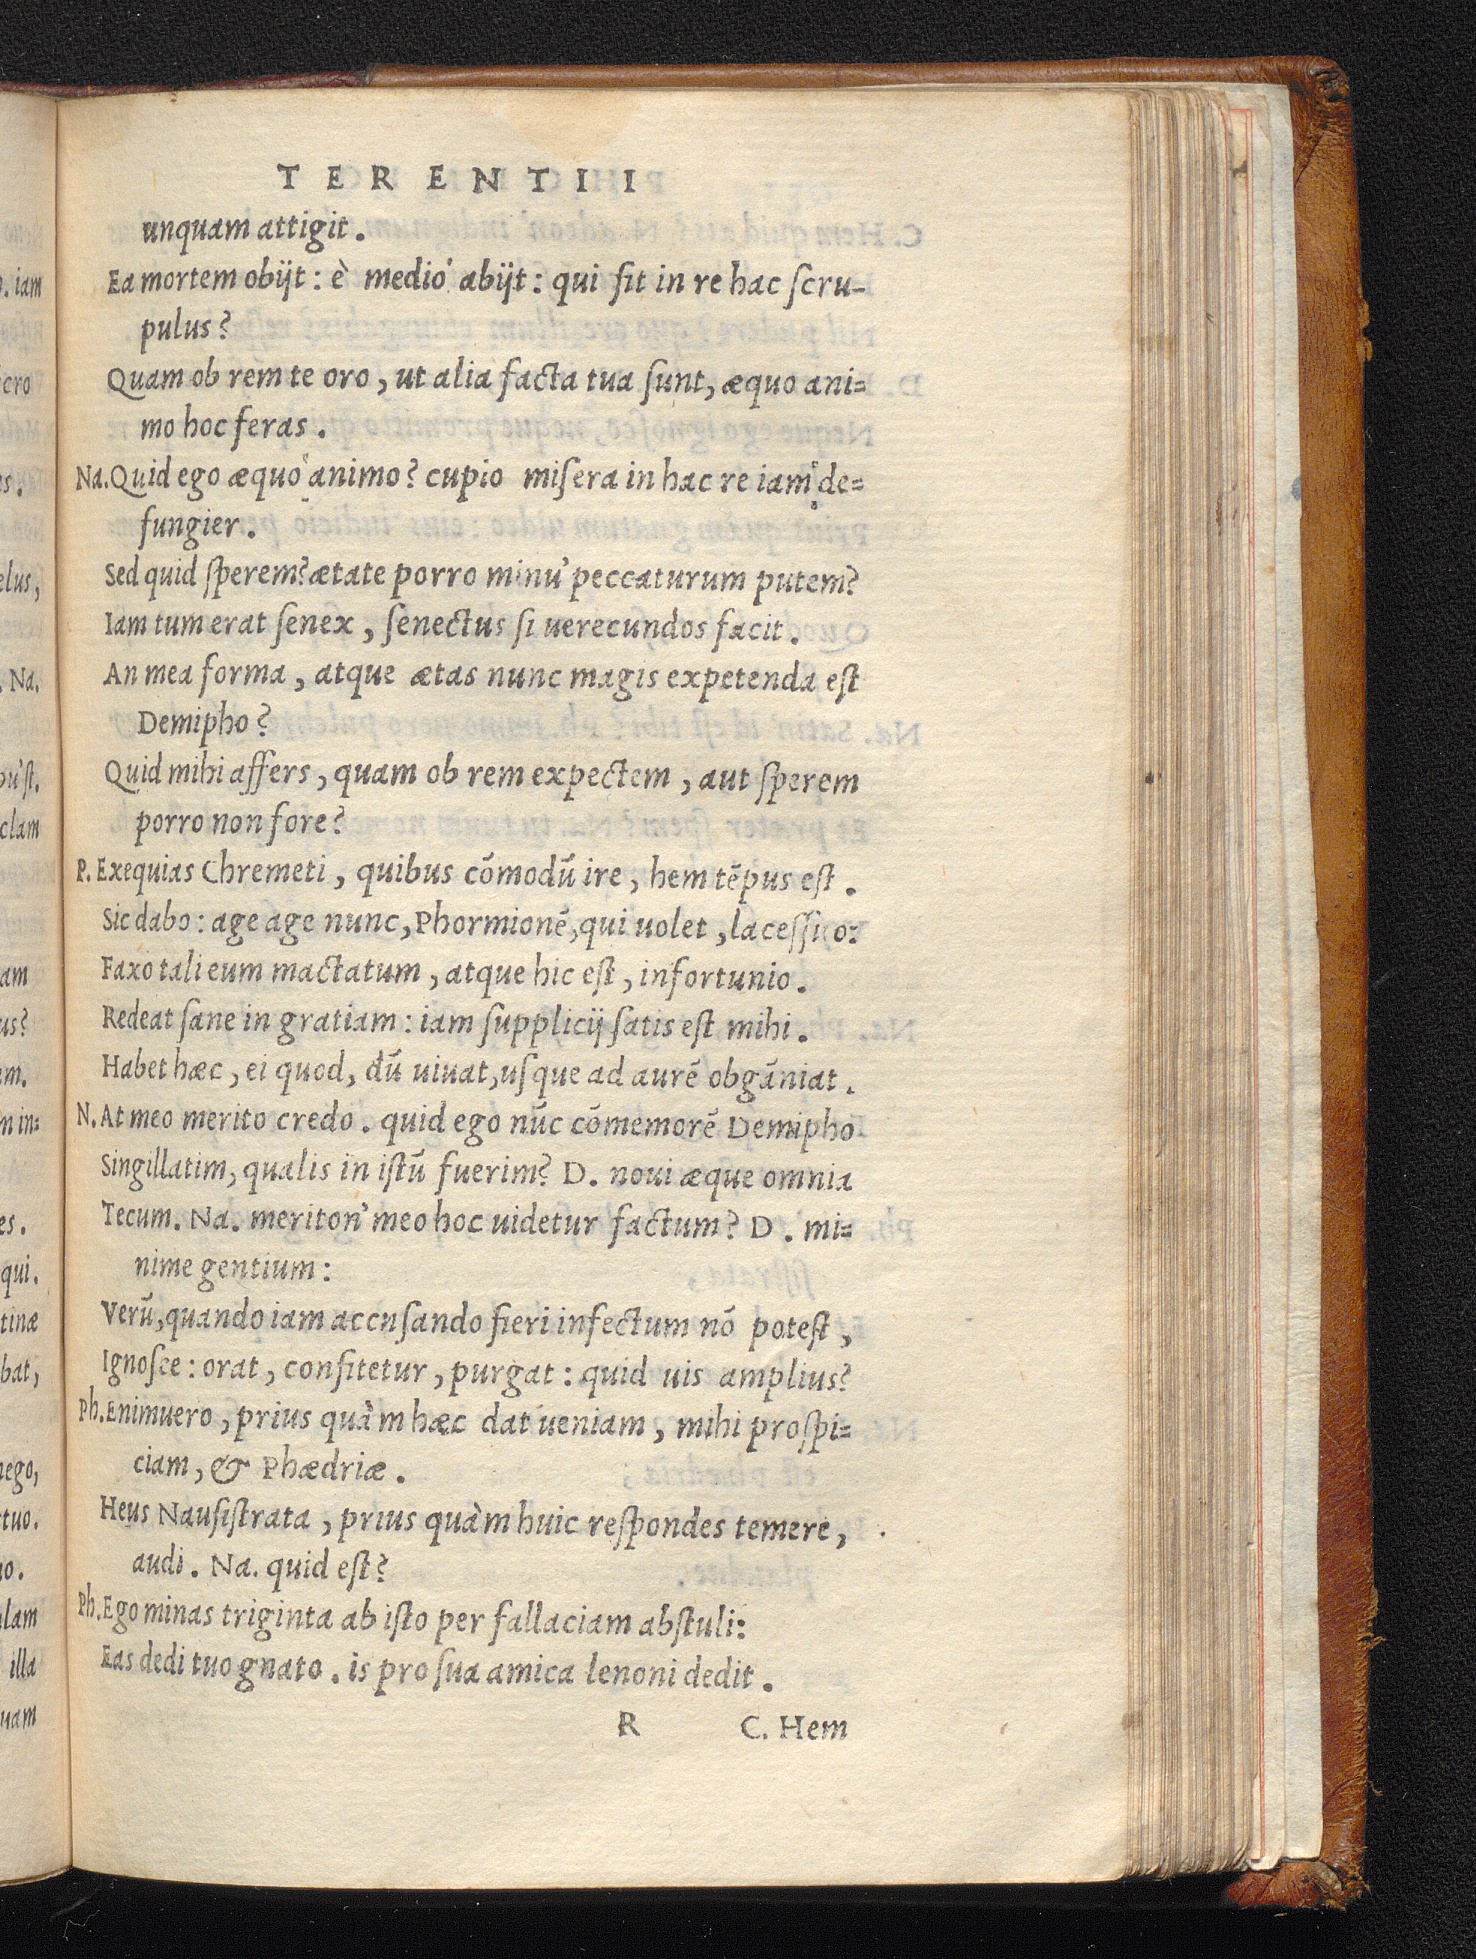 TERENTII
unquam attigit.
Ea mortem obijt: è medio abijt: qui sit in re hac scru-
pulus?
Quam ob rem te oro, ut alia facta tua sunt, æquo ani=
mo hoc feras.
Na. Quid ego æquo animo? cupio misera in hac re iam de=
fungier.
Sed quid sperem? ætate porro minu' peccaturum putem?
Iam tum erat senex, senectus si uerecundos facit.
An mea forma, atque ætas nunc magis expetenda est
Demipho?
Quid mihi affers, quam ob rem expectem, aut sperem
porro non fore?
P. Exequias Chremeti, quibus cōmodū ire, hem tēpus est.
Sic dabo: age age nunc, Phormionē, qui uolet, lacessito:
Faxo tali eum mactatum, atque hic est, infortunio.
Redeat sane in gratiam: iam supplicij satis est mihi.
Habet hæc, ei quod, dū uiuat, usque ad aurē obgāniat.
N. At meo merito credo. quid ego nūc cōmemorē Demipho
Singillatim, qualis in istū fuerim? D. noui æque omnia
Tecum. Na. meriton' meo hoc uidetur factum? D. mi=
nime gentium:
Verū, quando iam accnsando fieri infectum nō potest,
Ignosce: orat, confitetur, purgat: quid uis amplius?
Ph. Enimuero, prius quàm hæc dat ueniam, mihi prospi=
ciam, & Phædriæ.
Heus Nausistrata, prius quàm huic respondes temere,
audi. Na. quid est?
Ph. Ego minas triginta ab isto per fallaciam abstuli:
Eas dedi tuo gnato. is pro sua amica lenoni dedit.
R C. Hem